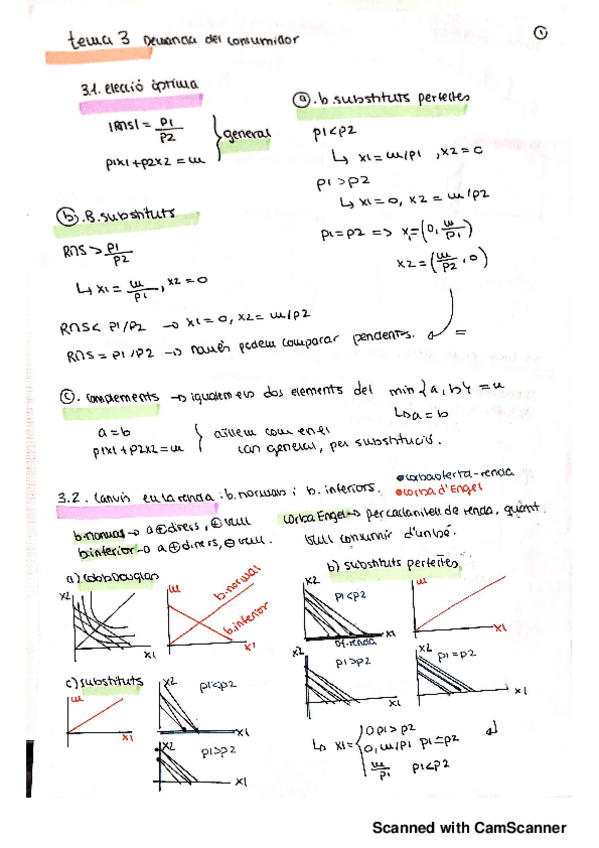 tema 3 Demanda del consumidor
1
3.1. elecció òptima
|RMS| = p1/p2
p1x1 + p2x2 = m
general
a. b. substituts perfectes
p1 < p2
↳ x1 = m/p1 , x2 = 0
p1 > p2
↳ x1 = 0, x2 = m/p2
p1 = p2 => x1 = (0, m/p1)
x2 = (m/p2, 0)
b. B. substituts
RMS > p1/p2
↳ x1 = m/p1 , x2 = 0
RMS < p1/p2 → x1 = 0, x2 = m/p2
RMS = p1/p2 → només podem comparar pendents. =
c. complements → igualem els dos elements del min{a, b} = u
↳ a = b
a = b
p1x1 + p2x2 = m
aïllem com en el
cas general, per substitució.
3.2. Canvis en la renda: b. normals i b. inferiors.
corba oferta-renda
corba d'Engel
b. normal → a ⊕ diners, ⊕ vull
b. inferior → a ⊕ diners, ⊖ vull.
corba Engel → per cada nivell de renda, quant
vull consumir d'un bé.
a) Cobb Douglas
x2
x1
m
b. normal
b. inferior
x1
b) substituts perfectes
x2
p1<p2
x1
of. renda
m
x1
x2
p1>p2
x2
p1=p2
x1
c) substituts
m
x1
x2
p1<p2
x1
x2
p1>p2
x1
↳ x1 = 0 p1 > p2
0, m/p1 p1 = p2
m/p1 p1 < p2
Scanned with CamScanner